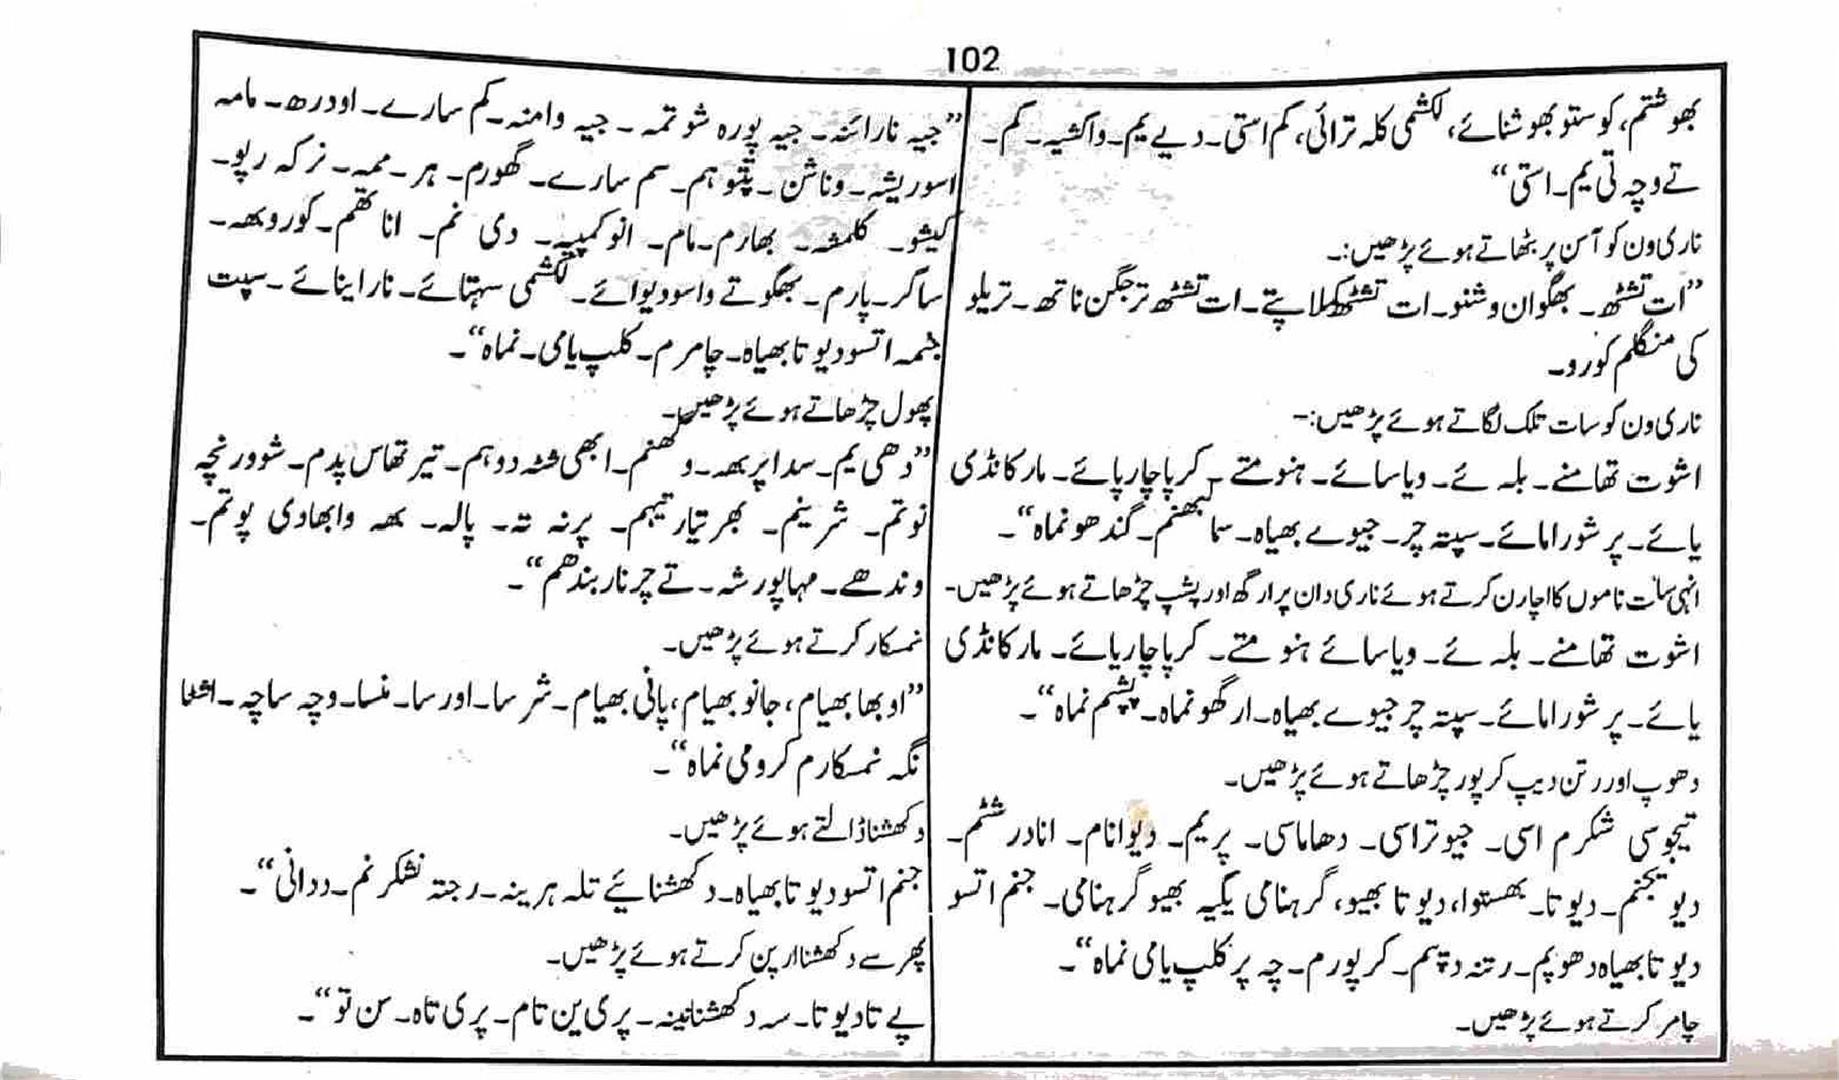 102
بھوشتم، کوستو بھوشنائے، لکشمی کلہ ترائی، کم استی۔ دیے یم۔ واکشیہ۔ کم۔
تے وچہ تی یم۔ استی“
ناری ون کو آسن پر بٹھاتے ہوئے پڑھیں:۔
”ات تشٹھ۔ بھگوان وشنو۔ ات تشٹھ کملاپتے۔ ات تشٹھ ترجگن ناتھ۔ تریلو
کی منگلم کورو۔
ناری ون کو سات تلک لگاتے ہوئے پڑھیں:۔
اشوت تھامنے۔ بلہ ئے۔ ویاسائے۔ ہنومتے۔ کرپاچارپائے۔ مارکانڈی
یائے۔ پرشورامائے۔ سپتہ چر۔ جیوے بھیاہ۔ سمالبھنم۔ گندھو نماہ“۔
انہی سات ناموں کا اچارن کرتے ہوئے ناری دان پر ارگھ اور پشپ چڑھاتے ہوئے پڑھیں۔
اشوت تھامنے۔ بلہ ئے۔ ویاسائے ہنومتے۔ کرپاچاریائے۔ مارکانڈی
یائے۔ پرشورامائے۔ سپتہ چرجیوے بھیاہ۔ ارگھو نماہ۔ پشپم نماہ“۔
دھوپ اور رتن دیپ کرپور چڑھاتے ہوئے پڑھیں۔
تیجوسی شکرم اسی۔ جیوتراسی۔ دھاماسی۔ پریم۔ دیوانام۔ انادرشٹم۔
دیو یجنم۔ دیوتا۔ بھستوا، دیوتا بھیو، گرہنامی یگیہ بھیو گرہنامی۔ جنم اتسو
دیوتابھیاہ دھوپم۔ رتنہ دیپم۔ کرپورم۔ چہ پرکلپ یامی نماہ“۔
چامر کرتے ہوئے پڑھیں۔
”جیہ نارائنہ۔ جیہ پورہ شوتمہ۔ جیہ وامنہ۔ کم سارے۔ اودرھ۔ مامہ
اسوریشہ۔ وناشن۔ پتوہم۔ سم سارے۔ گھورم۔ ہر۔ ممہ۔ نرکہ ریو۔
کیشو۔ کلمشہ۔ بھارم۔ مام۔ انوکمپیہ۔ دی نم۔ اناتھم۔ کوروبھہ۔
ساگر۔ پارم۔ بھگوتے واسودیوائے۔ لکشمی سہتائے۔ ناراینائے۔ سپت
جنمہ اتسودیوتا بھیاہ۔ چامرم۔ کلپ یامی۔ نماہ“۔
پھول چڑھاتے ہوئے پڑھیں۔
”دھی یم۔ سدا پربھہ۔ وگھنم۔ ابھی شٹہ دوہم۔ تیرتھاس پدم۔ شوورنچہ
نوتم۔ شرینم۔ بھرتیارتیہم۔ پرنہ تہ۔ پالہ۔ بھہ وابھادی پوتم۔
وندھے۔ مہاپورشہ۔ تے چرناربندھم“۔
نمسکار کرتے ہوئے پڑھیں۔
”اوبھا بھیام، جانوبھیام، پانی بھیام۔ شرسا۔ اورسا۔ منسا۔ وچہ ساچہ۔ اشٹا
نگہ نمسکارم کرومی نماہ“۔
دکھشنا ڈالتے ہوئے پڑھیں۔
جنم اتسودیوتا بھیاہ۔ دکھشنائیے تلہ ہرینہ۔ رجتہ نشکرنم۔ ددانی“۔
پھر سے دکھشنا ارپن کرتے ہوئے پڑھیں۔
پے تادیوتا۔ سہ دکھشنانینہ۔ پری ین تام۔ پری تاہ۔ سن تو“۔